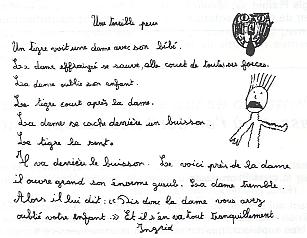 Une terrible peur
Un tigre voit une dame avec son bébé.
La dame effrayée se sauve, elle court de toutes ses forces.
La dame oublie son enfant.
Le tigre court après la dame.
La dame se cache derrière un buisson.
Le tigre la sent.
Il va derrière le buisson. Le voici près de la dame
il ouvre grand son énorme gueule. La dame tremble.
Alors il lui dit : « Dis donc la dame vous avez
oublié votre enfant. » Et il s'en va tout tranquillement.
Ingrid